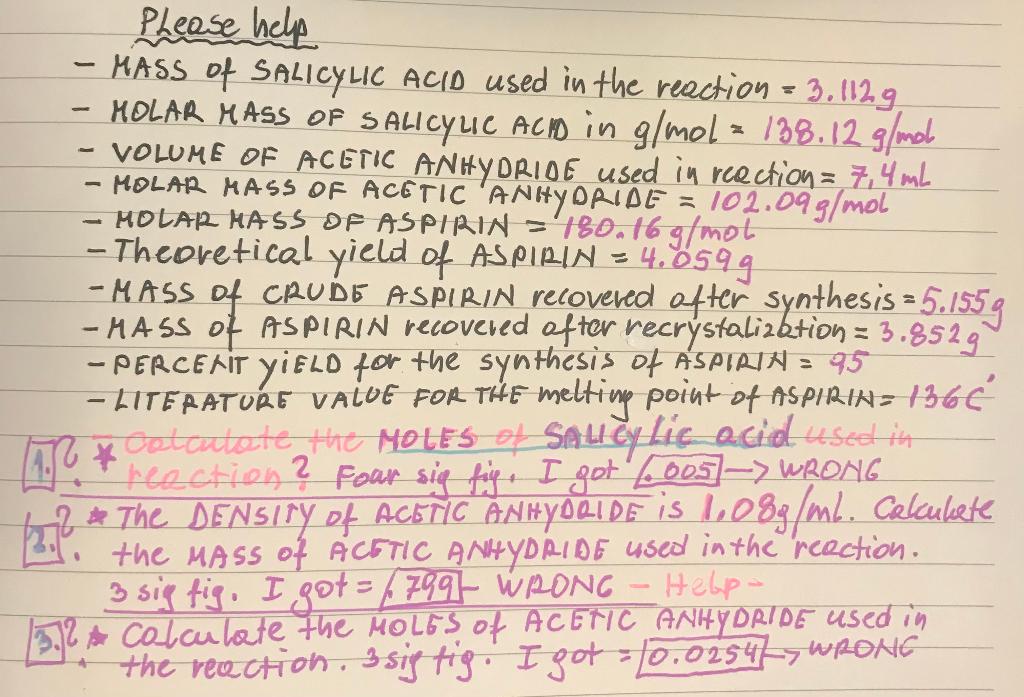 PLease help
- MASS of SALICYLIC ACID used in the reaction = 3.112 g
- MOLAR MASS OF SALICYLIC ACID in g/mol = 138.12 g/mol
- VOLUME OF ACETIC ANHYDRIDE used in reaction = 7,4 mL
- MOLAR MASS OF ACETIC ANHYDRIDE = 102.09 g/mol
- MOLAR MASS OF ASPIRIN = 180.16 g/mol
- Theoretical yield of ASPIRIN = 4.059 g
- MASS of CRUDE ASPIRIN recovered after synthesis = 5.155 g
- MASS of ASPIRIN recovered after recrystalization = 3.852 g
- PERCENT YiELD for the synthesis of ASPIRIN = 95
- LITERATURE VALUE FOR THE melting point of ASPIRIN = 136 C°
1. ? * Calculate the MOLES of SALICYLIC acid used in
reaction? Foar sig fig. I got .005 -> WRONG
2. ? * THE DENSITY of ACETIC ANHYDRIDE is 1.08g/mL. Calculate
the MASS of ACETIC ANHYDRIDE used in the reaction.
3 sig fig. I got = 7.99 - WRONG - Help -
3. ? * Calculate the MOLES of ACETIC ANHYDRIDE used in
the reaction. 3 sig fig. I got = 0.0254 -> WRONG